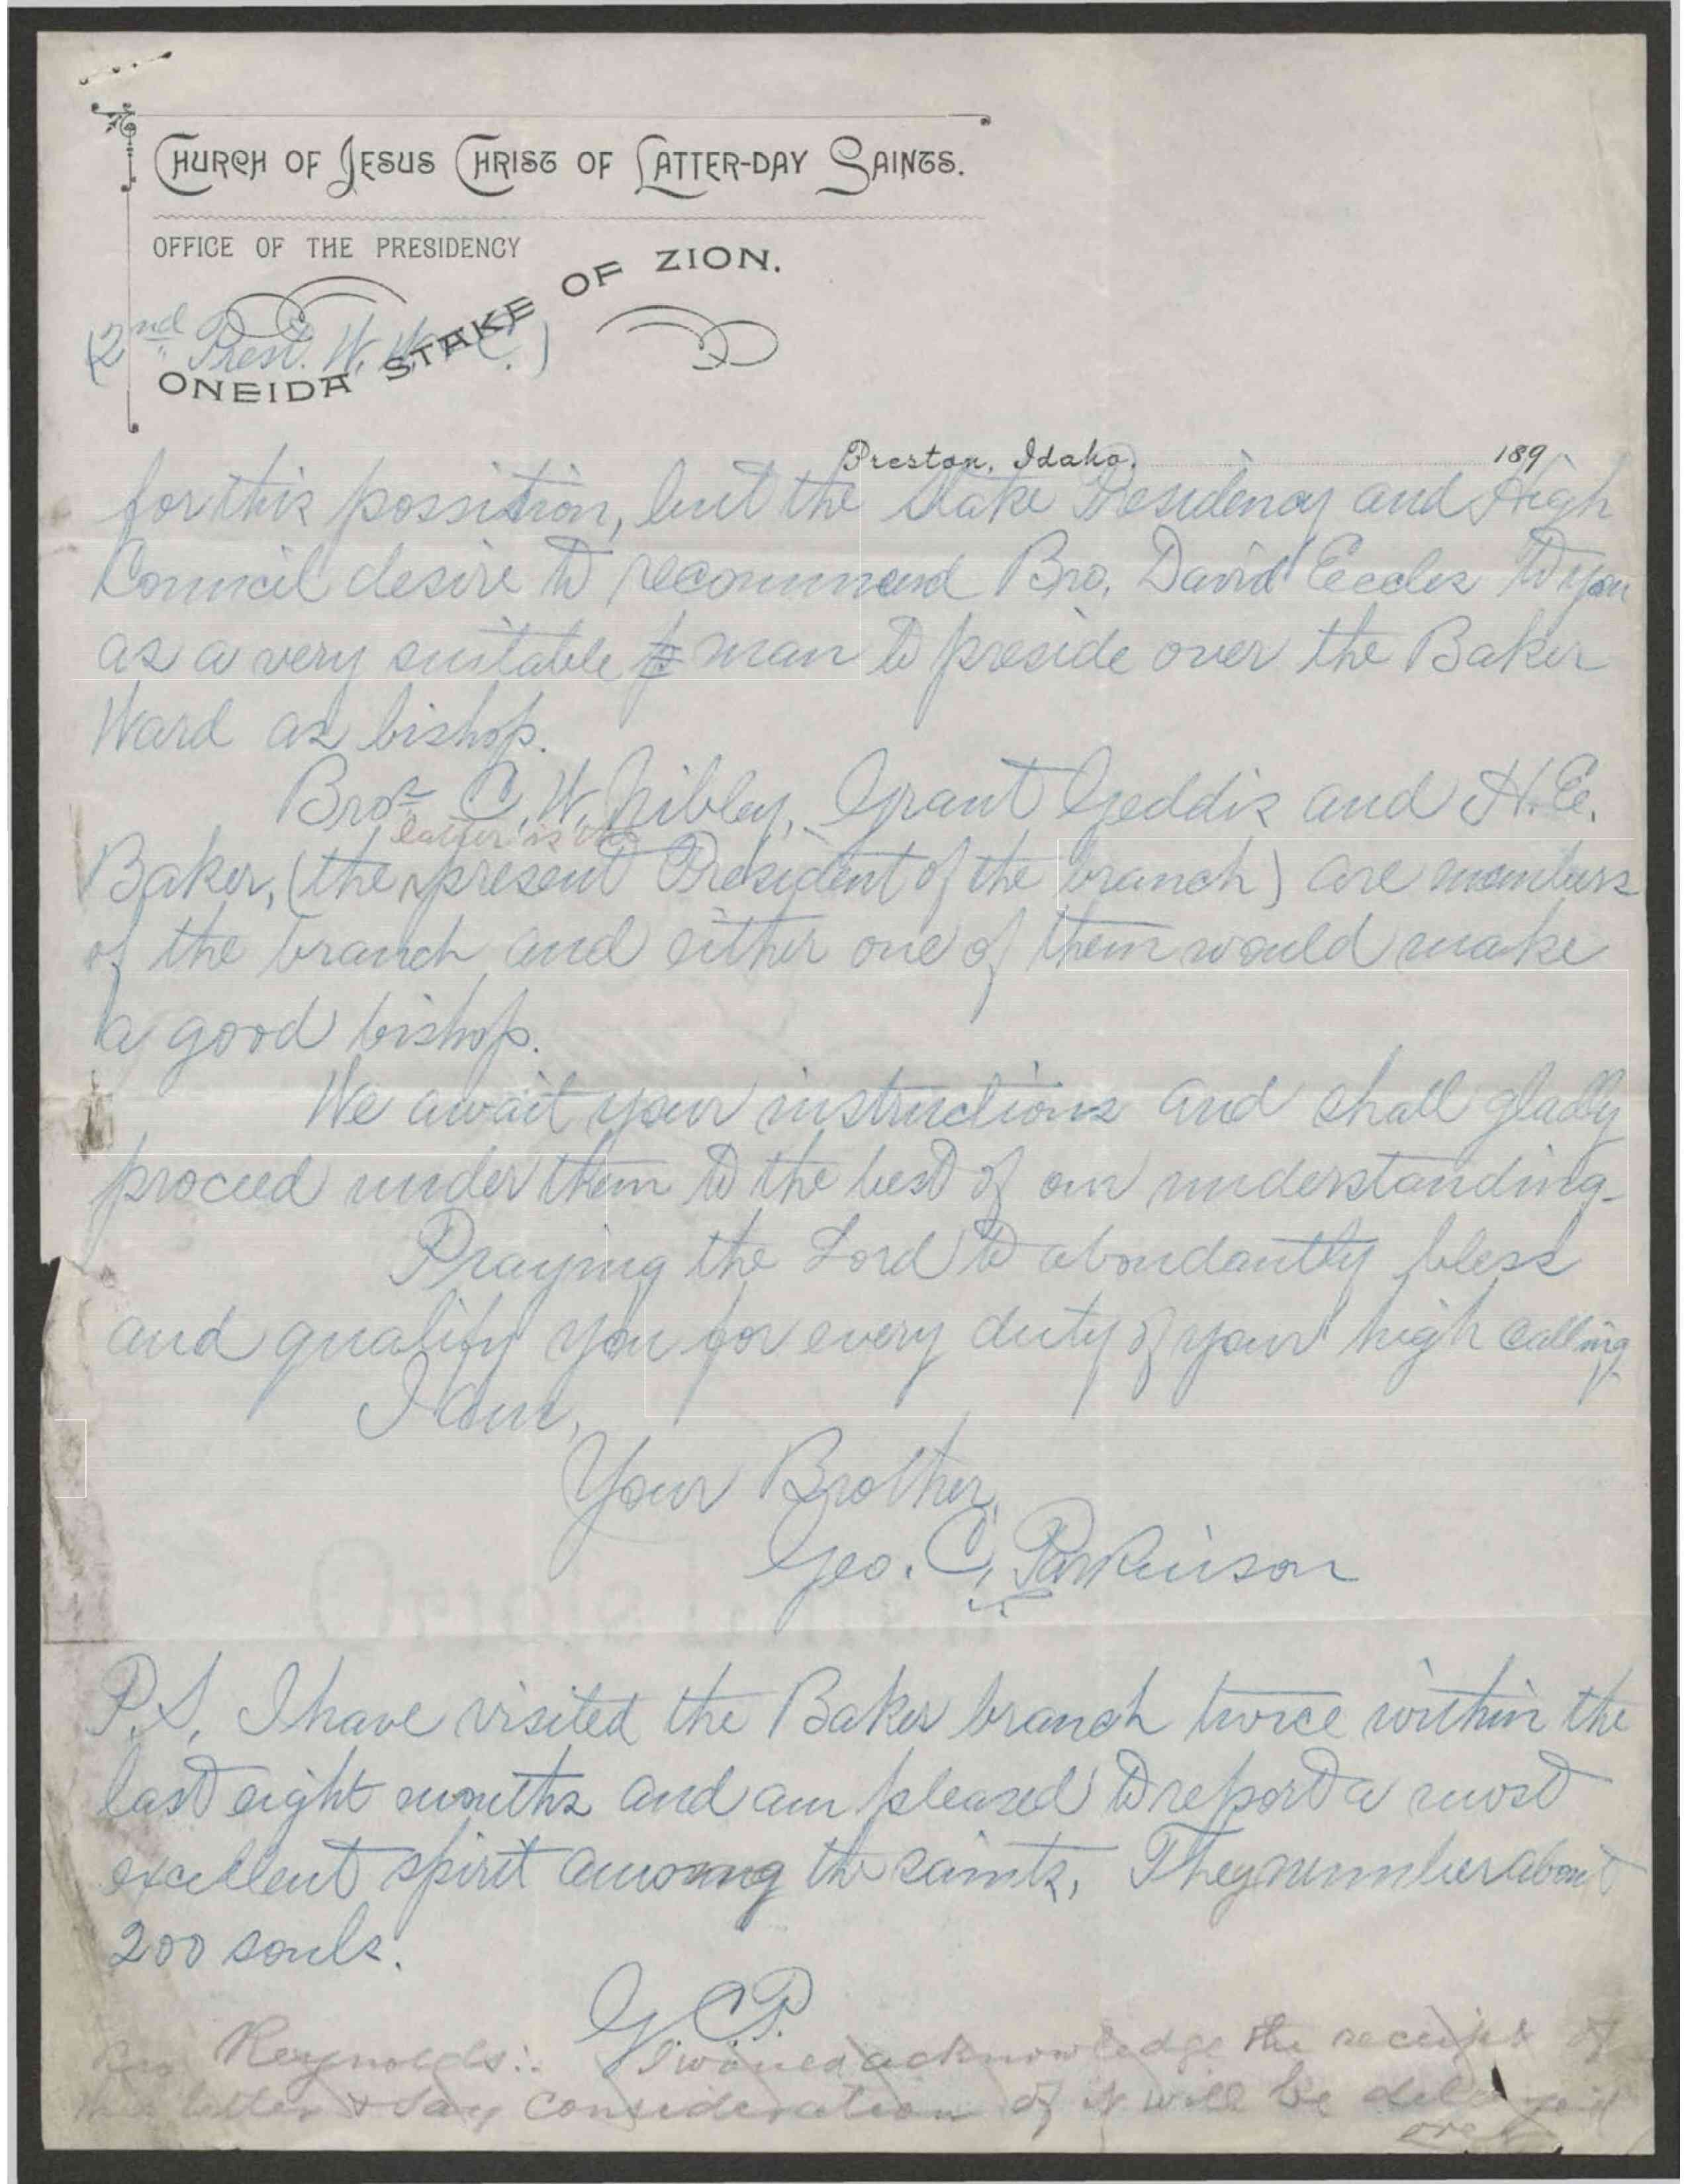 CHURCH OF JESUS CHRIST OF LATTER-DAY SAINTS.
OFFICE OF THE PRESIDENCY
ONEIDA STAKE OF ZION.
(2nd Prest. W. W.)
Preston, Idaho, 189
for this possition, but the Stake Presidency and High
Council desire to recommend Bro. David Eccles to you
as a very suitable man to preside over the Baker
Ward as bishop.
Bros. C. W. Nibley, Grant Geddis and H. E.
latter is the
Baker, (the present President of the branch) are members
of the branch and either one of them would make
a good bishop.
We await your instructions and shall gladly
proceed under them to the best of our understanding.
Praying the Lord to abondantly bless
and qualify you for every duty of your high calling
I am,
Your Brother,
Geo. C. Parkinson
P.S. I have visited the Baker branch twice within the
last eight months and am pleased to report a most
excellent spirit among the saints. They number about
200 souls.
G.C.P.
Bro Reynolds: I would acknowledge the receipt of
this letter & say consideration of it will be delayed
over